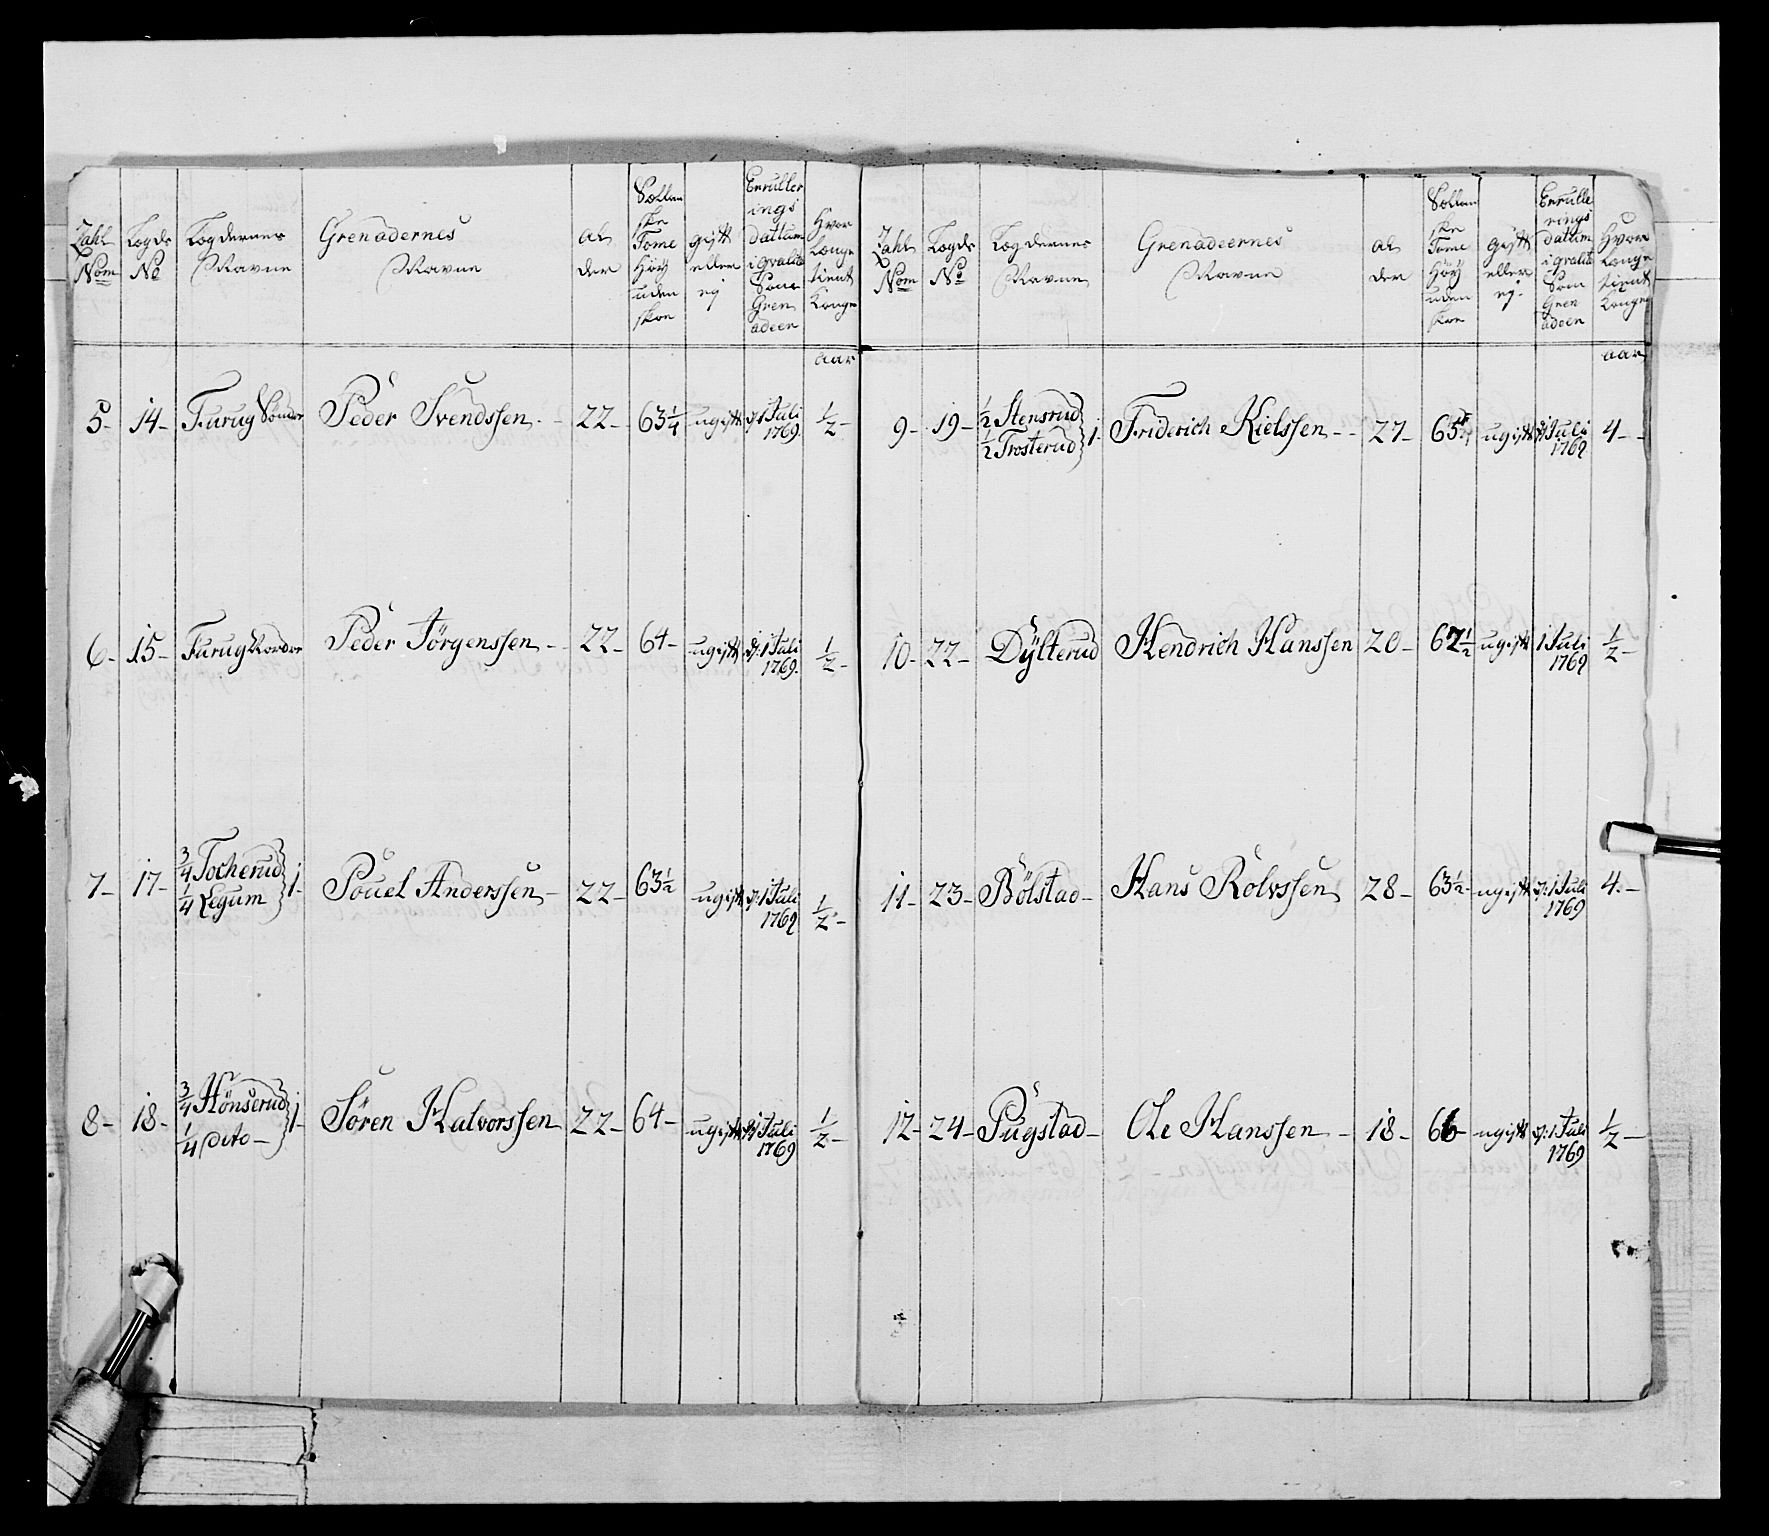 Zahl Nom
Legds No
Legdernes Navne
Grenadernes Navne
Alder
Sollanske Tome Höy uden skoe
gift eller ej
Enrullerings dattum i qvalite Som Grenadeer
Hvor længe tient Konge
aar
5- 14- Furug Söndre Peder Svendssen 22- 63 1/4 ugift d: 1 Juli 1769. 1/2-
6- 15- Furug Nordre Peder Jörgenssen 22- 64- ugift d: 1 Juli 1769. 1/2-
7- 17- 3/4 Tocherud 1/4 Legum } 1- Pouel Anderssen 22- 63 1/2 ugift d: 1 Juli 1769 1/2-
8- 18- 3/4 Hönserud 1/4 dito } 1- Sören Halvorssen 22- 64- ugift d: 1 Juli 1769 1/2-
Zahl Nom
Legds No
Legdernes Navne
Grenadeernes Navne
Alder
Sollanske Tome Höy uden skoe
gift eller ej.
Enrullerings dattum i qvalite Som Grenadeer
Hvor længe tient Konge
aar
9- 19- 1/2 Stensrud 1/2 Trosterud } 1- Friderich Kielssen 27- 65 ugift d: 1 Juli 1769 4-
10- 22- Dÿlterud Hendrich Hanssen 20- 62 1/2 ugift 1 Juli 1769 1/2-
11- 23- Bölstad Hans Rolvssen 28- 63 1/2 ugift d: 1 Juli 1769 4-
12- 24- Pugstad Ole Hanssen 18- 66 ugift d: 1 Juli 1769 1/2-